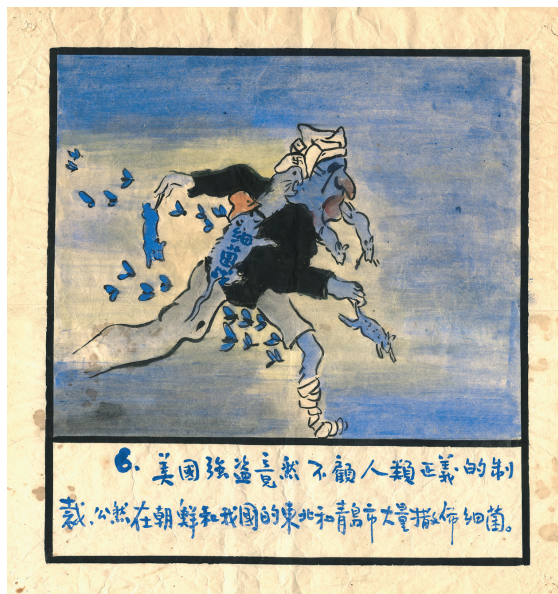 細菌
6. 美國強盜竟然不顧人類正義的制
裁、公然在朝鮮和我國的東北和青島市大量撒佈細菌。